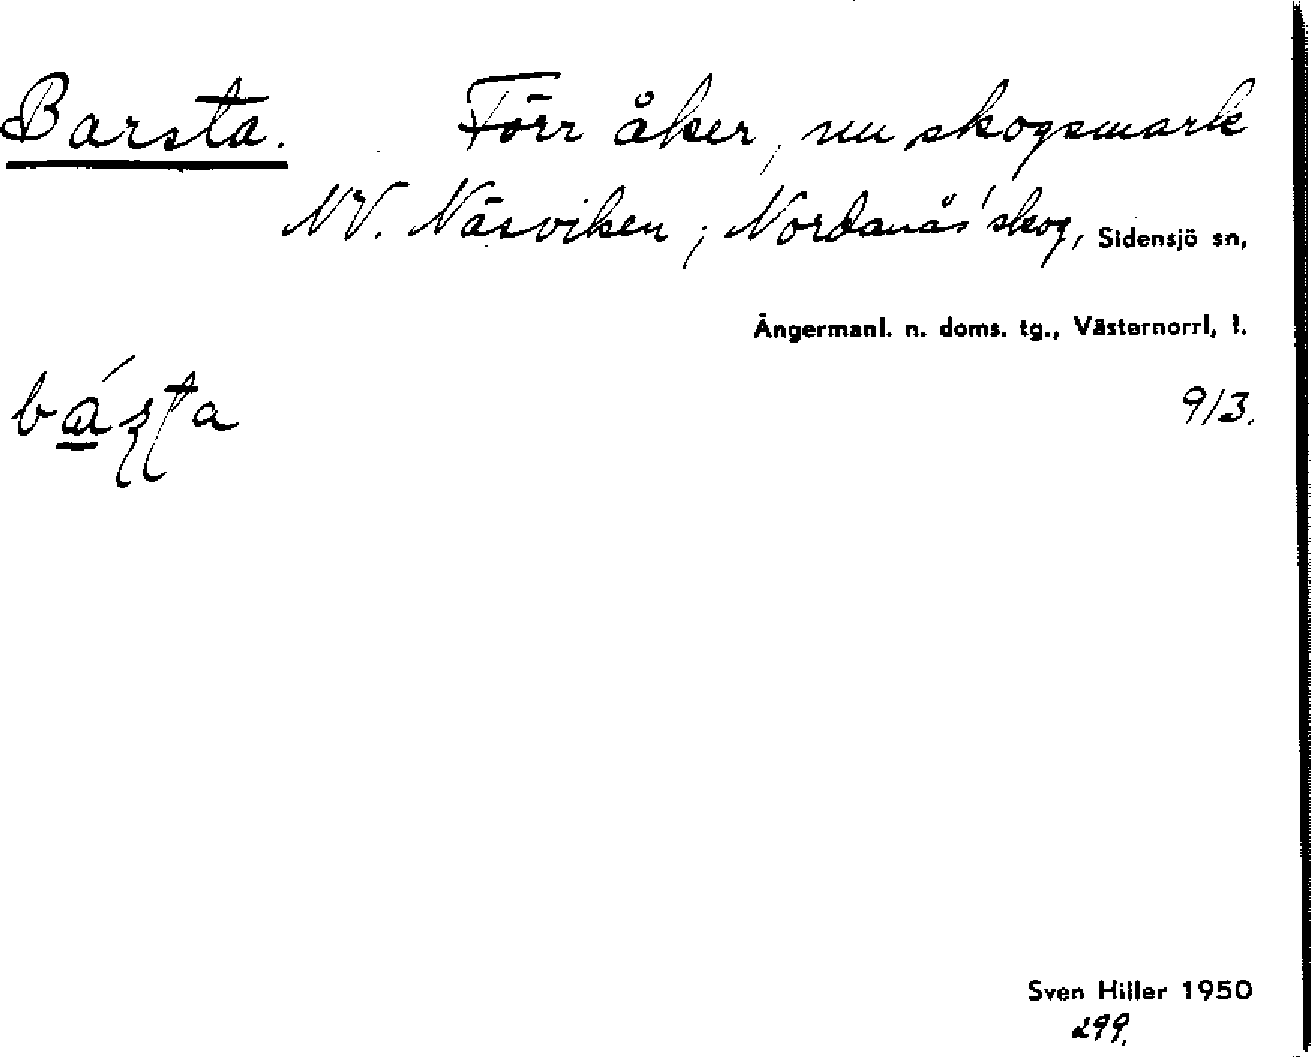 Barsta. Förr åker, nu skogsmark
NV. Näsviken; Nordanås' skog, Sidensjö sn,
Ångermanl. n. doms. tg., Västernorrl, l.
9/3.
Sven Hiller 1950
299.